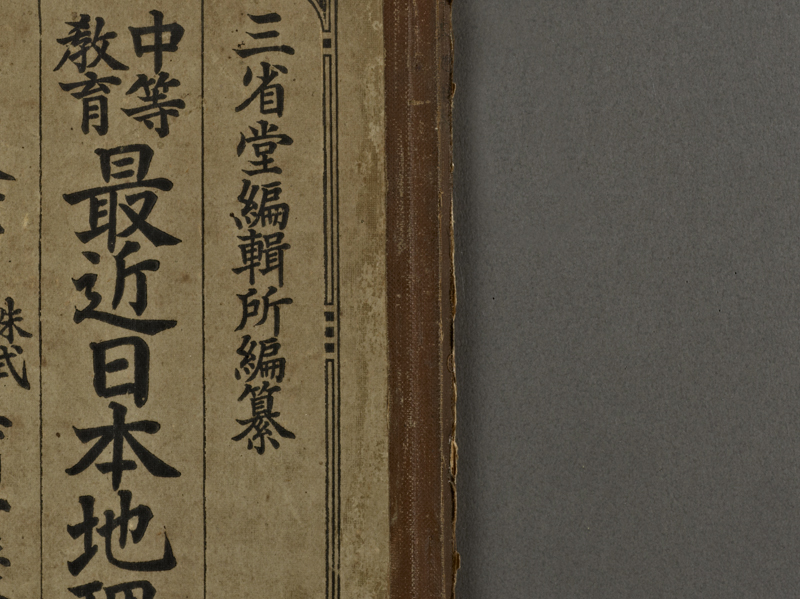 三省堂編輯所編纂
中等
教育
最近日本地理
株式